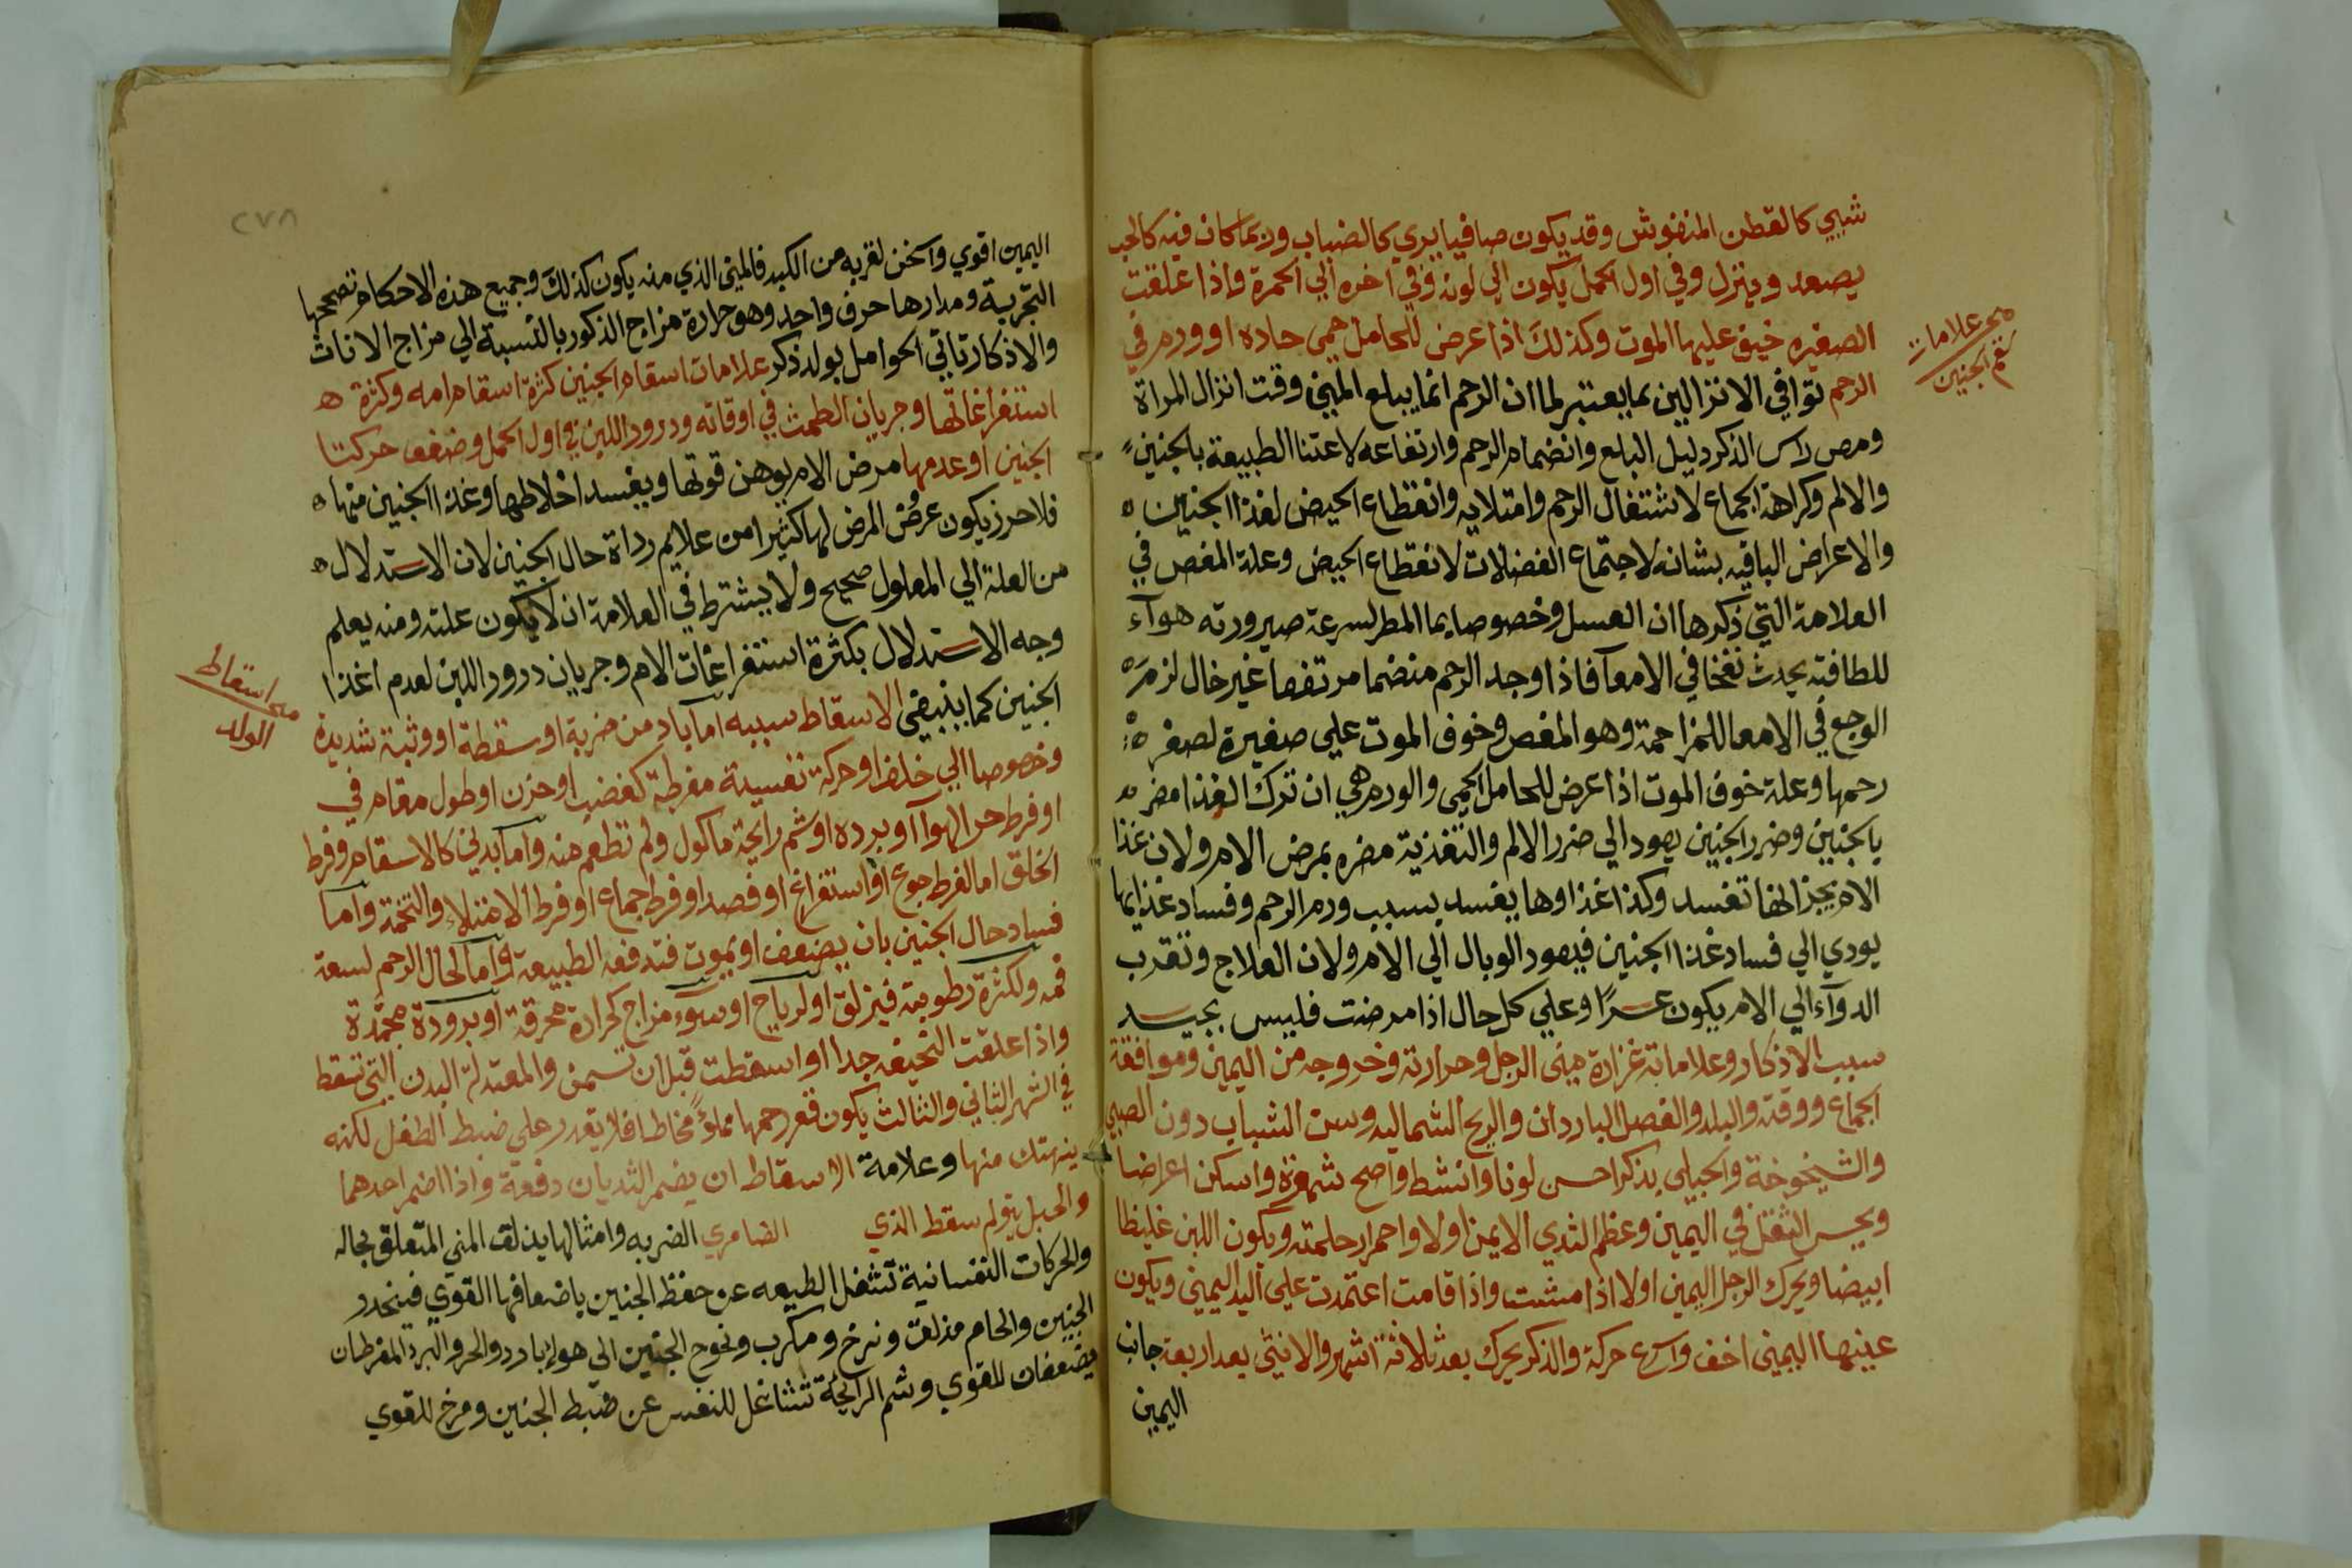 شبيي كالقطن المنفوش وقد يكون صافيا يري كالضباب وربما كان فيه كالحب
يصعد وينزل وفي اول الحمل يكون الي لونه وفي اخره الي الحمرة واذا علقت
الصغيره خيف عليها الموت وكذلك اذا عرض للحامل حمى حاده او ورم في
الرحم توافي الانزالين بما يعتبر لما ان الرحم انما يبلع المني وقت انزال المراة
ومص راس الذكر دليل البلع وانضمام الرحم وارتفاعه لاعتنا الطبيعة بالجنين
والالم وكراهة الجماع لاشتغال الرحم وامتلايه وانقطاع الحيض لغذا الجنين ه
والاعراض الباقيه بشانه لاجتماع الفضلات لانقطاع الحيض وعلة المغص في
العلامة التي ذكرها ان العسل وخصوصا بما المطر لسرعة صيرورته هوآء
للطافته يحدث نفخا في الامعآ فاذا وجد الرحم منضما مرتفعا غير خال لزم ه
الوجع في الامعا للمزاحمة وهو المغص وخوف الموت علي صغيرة لصغر ه
رحمها وعلة خوف الموت اذا عرض للحامل الحمى والورم هي ان ترك الغذا مضر ه
بالجنين وضرر الجنين يعود الي ضرر الالم والتغذية مضره بمرض الام ولان غذا
الام يفسد وكذا غذاوها يفسد بسبب ورم الرحم وفساد غذايها
يودي الي فساد غذا الجنين فيعود الوبال الي الام ولان العلاج وتقرب
الدوآء الي الام يكون عسرًا وعلي كل حال اذا مرضت فليس بجيد
سبب الاذكار وعلاماته غزارة مني الرجل وحرارته وخروجه من اليمين وموافقة
الجماع ووقته والبلد والفصل الباردان والريح الشماليه وسن الشباب دون الصبي
والشيخوخة والحبلى بذكر احسن لونا وانشط واصح شهوة واسكن اعراضا
ويحس الثقل في اليمين وعظم الثدي الايمن اولا واحمرار حلمته ويكون اللبن غليظا
ابيضا ويحرك الرجل اليمين اولا اذا مشت واذا قامت اعتمدت علي اليد اليميني ويكون
عينها اليمنى اخف واسرع حركة والذكر يحرك بعد ثلاثة اشهر والانثى بعد اربعة جانب
اليمين
علامات
سقم الجنين
٢٧٨
اليمين اقوي واسخن لقربه من الكبد فالمني الذي منه يكون كذلك وجميع هذه الاحكام تصححها
التجربة ومدارها حرف واحد وهو حرارة مزاج الذكور بالنسبة الي مزاج الاناث
والاذكار تاتي الحوامل بولد ذكر علامات اسقام الجنين كثرة اسقام امه وكثرة ه
استفراغاتها وجريان الطمث في اوقاته ودرور اللبن في اول الحمل وضعف حركتا
الجنين او عدمها مرض الام يوهن قوتها ويفسد اخلاطها وغذا الجنين منها ه
فلاحرز يكون عرض المرض لها كثيرا من علايم رداة حال الجنين لان الاستدلال ه
من العلة الي المعلول صحيح ولا يشترط في العلامة ان لا يكون علته ومنه يعلم
وجه الاستدلال بكثرة استفراغات الام وجريان درور اللبن لعدم اغذا
الجنين كما ينبغي الاسقاط سببه اما باد من ضربة او سقطة او وثبة شديدة
وخصوصا الي خلف او حركة نفسية مفرطة كغضب او حزن او طول مقام في
او فرط حر الهوآ او برده او شم رايحة ماكول ولم تطعم منه واما بدني كالاسقام وفرط
الخلق اما لفرط جوع او استفراغ او فصد او فرط جماع او فرط الامتلاء والتخمة واما
فساد حال الجنين بان يضعف او يموت فتدفعه الطبيعة واما لحال الرحم لسعة
فمه ولكثرة رطوبته فيزلق او لرياح او سوء مزاج لحرارة محرقة او برودة مجمدة
واذا علقت النحيفه جدا او اسقطت قبل ان تسمن والمعتدلة البدن التي تسقط
في الشهر الثاني والثالث يكون قعر رحمها مملوءً مخاطا فلا يقدر على ضبط الطفل لكنه
ينهتك منها وعلامة الاسقاط ان يضمر الثديان دفعة واذا ضمر احدهما
والحبل بتوام سقط الذي الضامري الضربه وامثالها يذلق المني المتعلق بحاله
والحركات النفسانية تشغل الطبيعه عن حفظ الجنين باضعافها القوي فينحدر
الجنين والحمام مذلق ومرخ ومكرب ونحوج الجنين الي هوا بارد والحر والبرد المفرطان
يضعفان للقوي وشم الرايحة تشاغل للنفس عن ضبط الجنين ومرخ للقوي
اسقاط
الولد